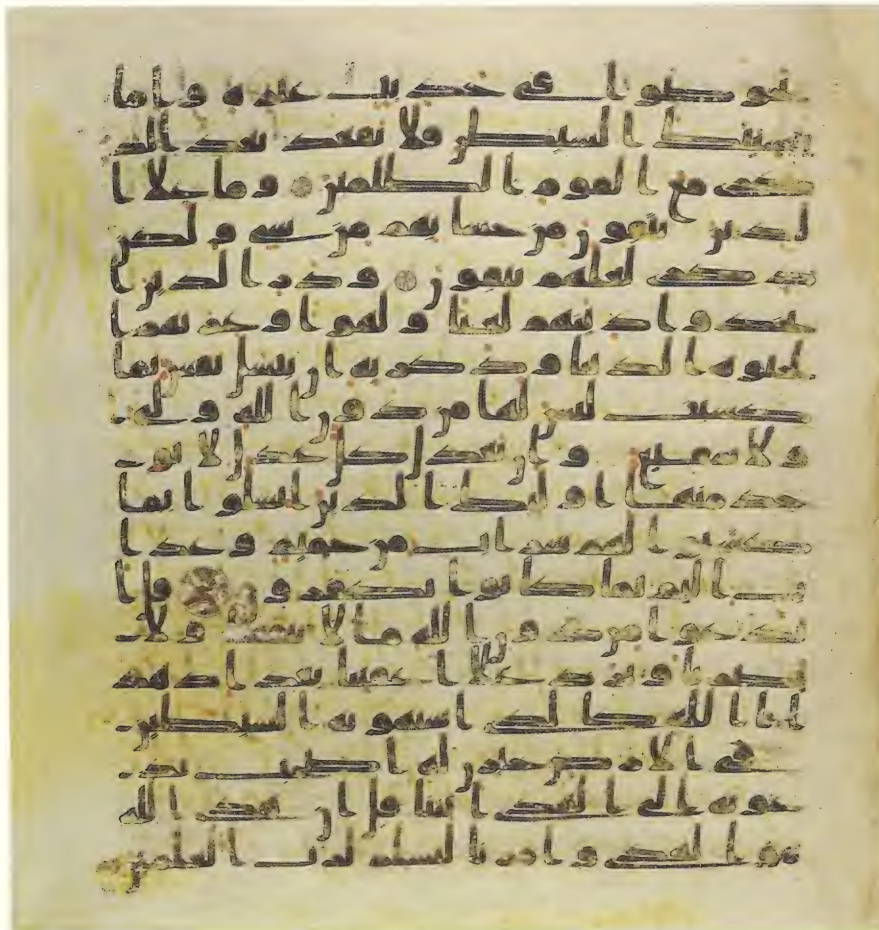 يخوضوا في حديث غيره واما
ينسينك الشيطن فلا تقعد بعد الذ
كرى مع القوم الظلمين وما على ا
لذين يتقون من حسابهم من شيء ولكن
ذكرى لعلهم يتقون وذر الذين ا
تخذوا دينهم لعبا ولهوا وغرتهم ا
لحيوة الدنيا وذكر به ان تبسل نفس بما
كسبت ليس لها من دون الله ولي
ولا شفيع وان تعدل كل عدل لا يؤ
خذ منها اولئك الذين ابسلوا بما
كسبوا لهم شراب من حميم وعذا
ب اليم بما كانوا يكفرون قل ا
ندعوا من دون الله ما لا ينفعنا ولا
يضرنا ونرد على اعقبنا بعد اذ هد
ينا الله كالذي استهوته الشيطين
في الارض حيرن له اصحب يد
عونه الى الهدى ائتنا قل ان هدى الله
هو الهدى وامرنا لنسلم لرب العلمين